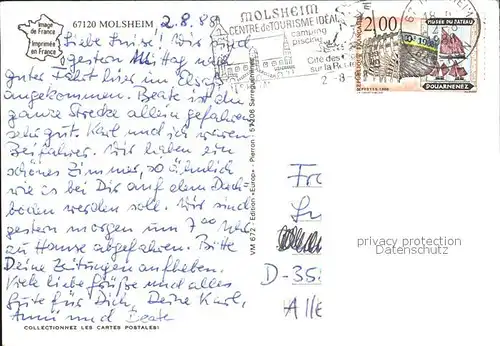 Image
de France
Imprimée
en France
67120 MOLSHEIM 2.8.88
MOLSHEIM
CENTRE de TOURISME IDÉAL
camping
piscine
Cité des
sur la R
2-8
2,00
MUSÉE DU BATEAU
DOUARNENEZ
Liebe Luise! Wir sind
gestern Mittag nach
guter Fahrt hier im Elsaß
angekommen. Beate ist die
ganze Strecke allein gefahren
sehr gut. Karl und ich waren
Beifahrer. Wir haben ein
schönes Zimmer, so ähnlich
wie es bei Dir auf dem Dach
boden werden soll. Wir sind
gestern morgen um 7⁰⁰ Uhr
zu Hause abgefahren. Bitte
Deine Zeitungen aufheben.
Viele liebe Grüße und alles
Gute für Dich, Deine Karl,
Anni und Beate
COLLECTIONNEZ LES CARTES POSTALES!
VM 672 - Edition «Europ» - Pierron - 57206 Sarreguemines
Fr
D-35
Alle
privacy protection
Datenschutz